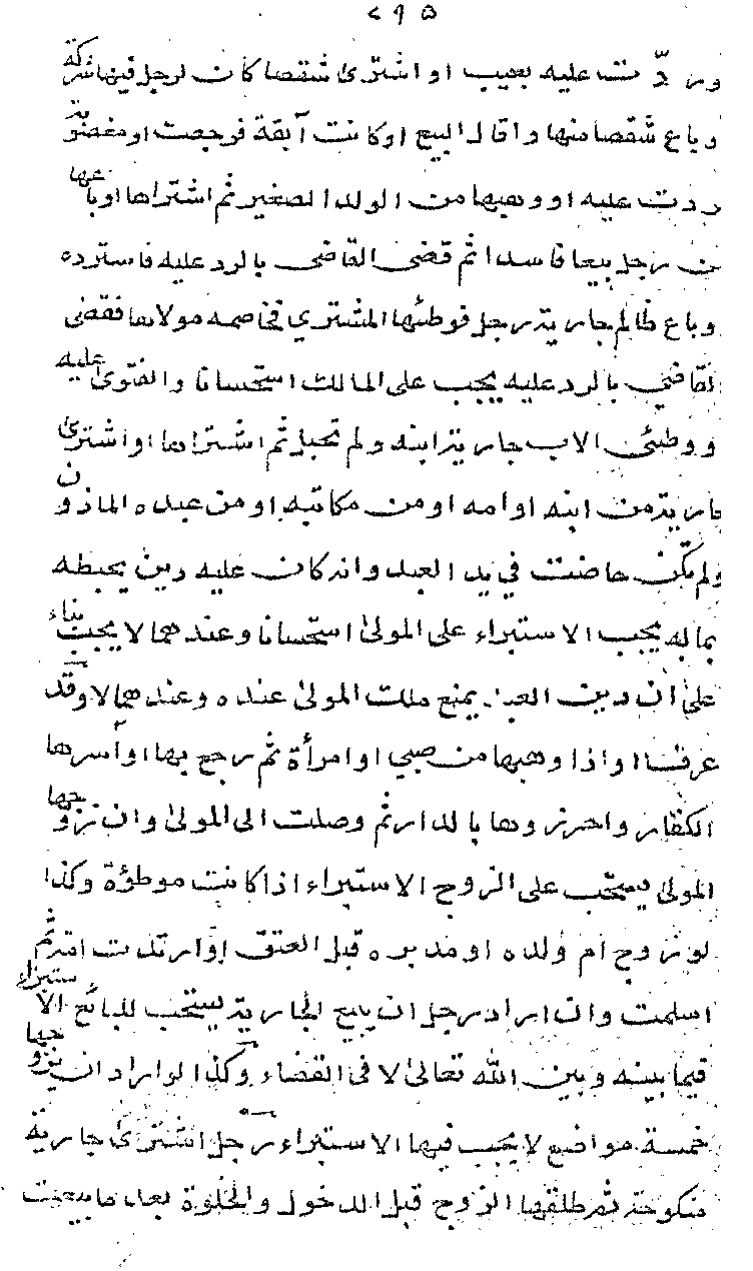 ٢٩٥
وردّت عليه بعيب او اشترى شقصا كان لرجل فيها شركة
وباع شقصا منها واقال البيع اوكانت آبقة فرجعت او مغصوبة
ردت عليه او وهبها من الولد الصغير ثم اشتراها او باعها
من رجل بيعا فاسدا ثم قضى القاضى بالرد عليه فاسترده
وباع ظالم جارية رجل فوطئها المشتري فخاصمه مولاها فقضى
القاضي بالرد عليه يجب على المالك استحسانا والفتوى عليه
ووطئ الاب جارية ابنه ولم تحبل ثم اشتراها او اشترى
جارية من ابنه او امه او من مكاتبه او من عبده الماذون
ولم تكن حاضت في يد العبد وان كان عليه دين يحيطه
بماله يجب الاستبراء على المولى استحسانا وعندهما لا يجب بناء
على ان دين العبد يمنع ملك المولى عنده وعندهما لا وقد
عرفنا واذا وهبها من صبي او امرأة ثم رجع بها او أسرها
الكفار واحرزوها بالدار ثم وصلت الى المولى وان تزوجها
المولى يستحب على الزوج الاستبراء اذا كانت موطؤة وكذا
لو زوج ام ولده او مدبره قبل العتق او ارتدت امة ثم
اسلمت وان اراد رجل ان يبيع الجارية يستحب للبائع الاستبراء
فيما بينه وبين الله تعالى لا فى القضاء وكذا لو اراد ان يزوجها
خمسة مواضع لا يجب فيها الاستبراء رجل اشترى جارية
منكوحة ثم طلقها الزوج قبل الدخول والخلوة بعد ما بيعت